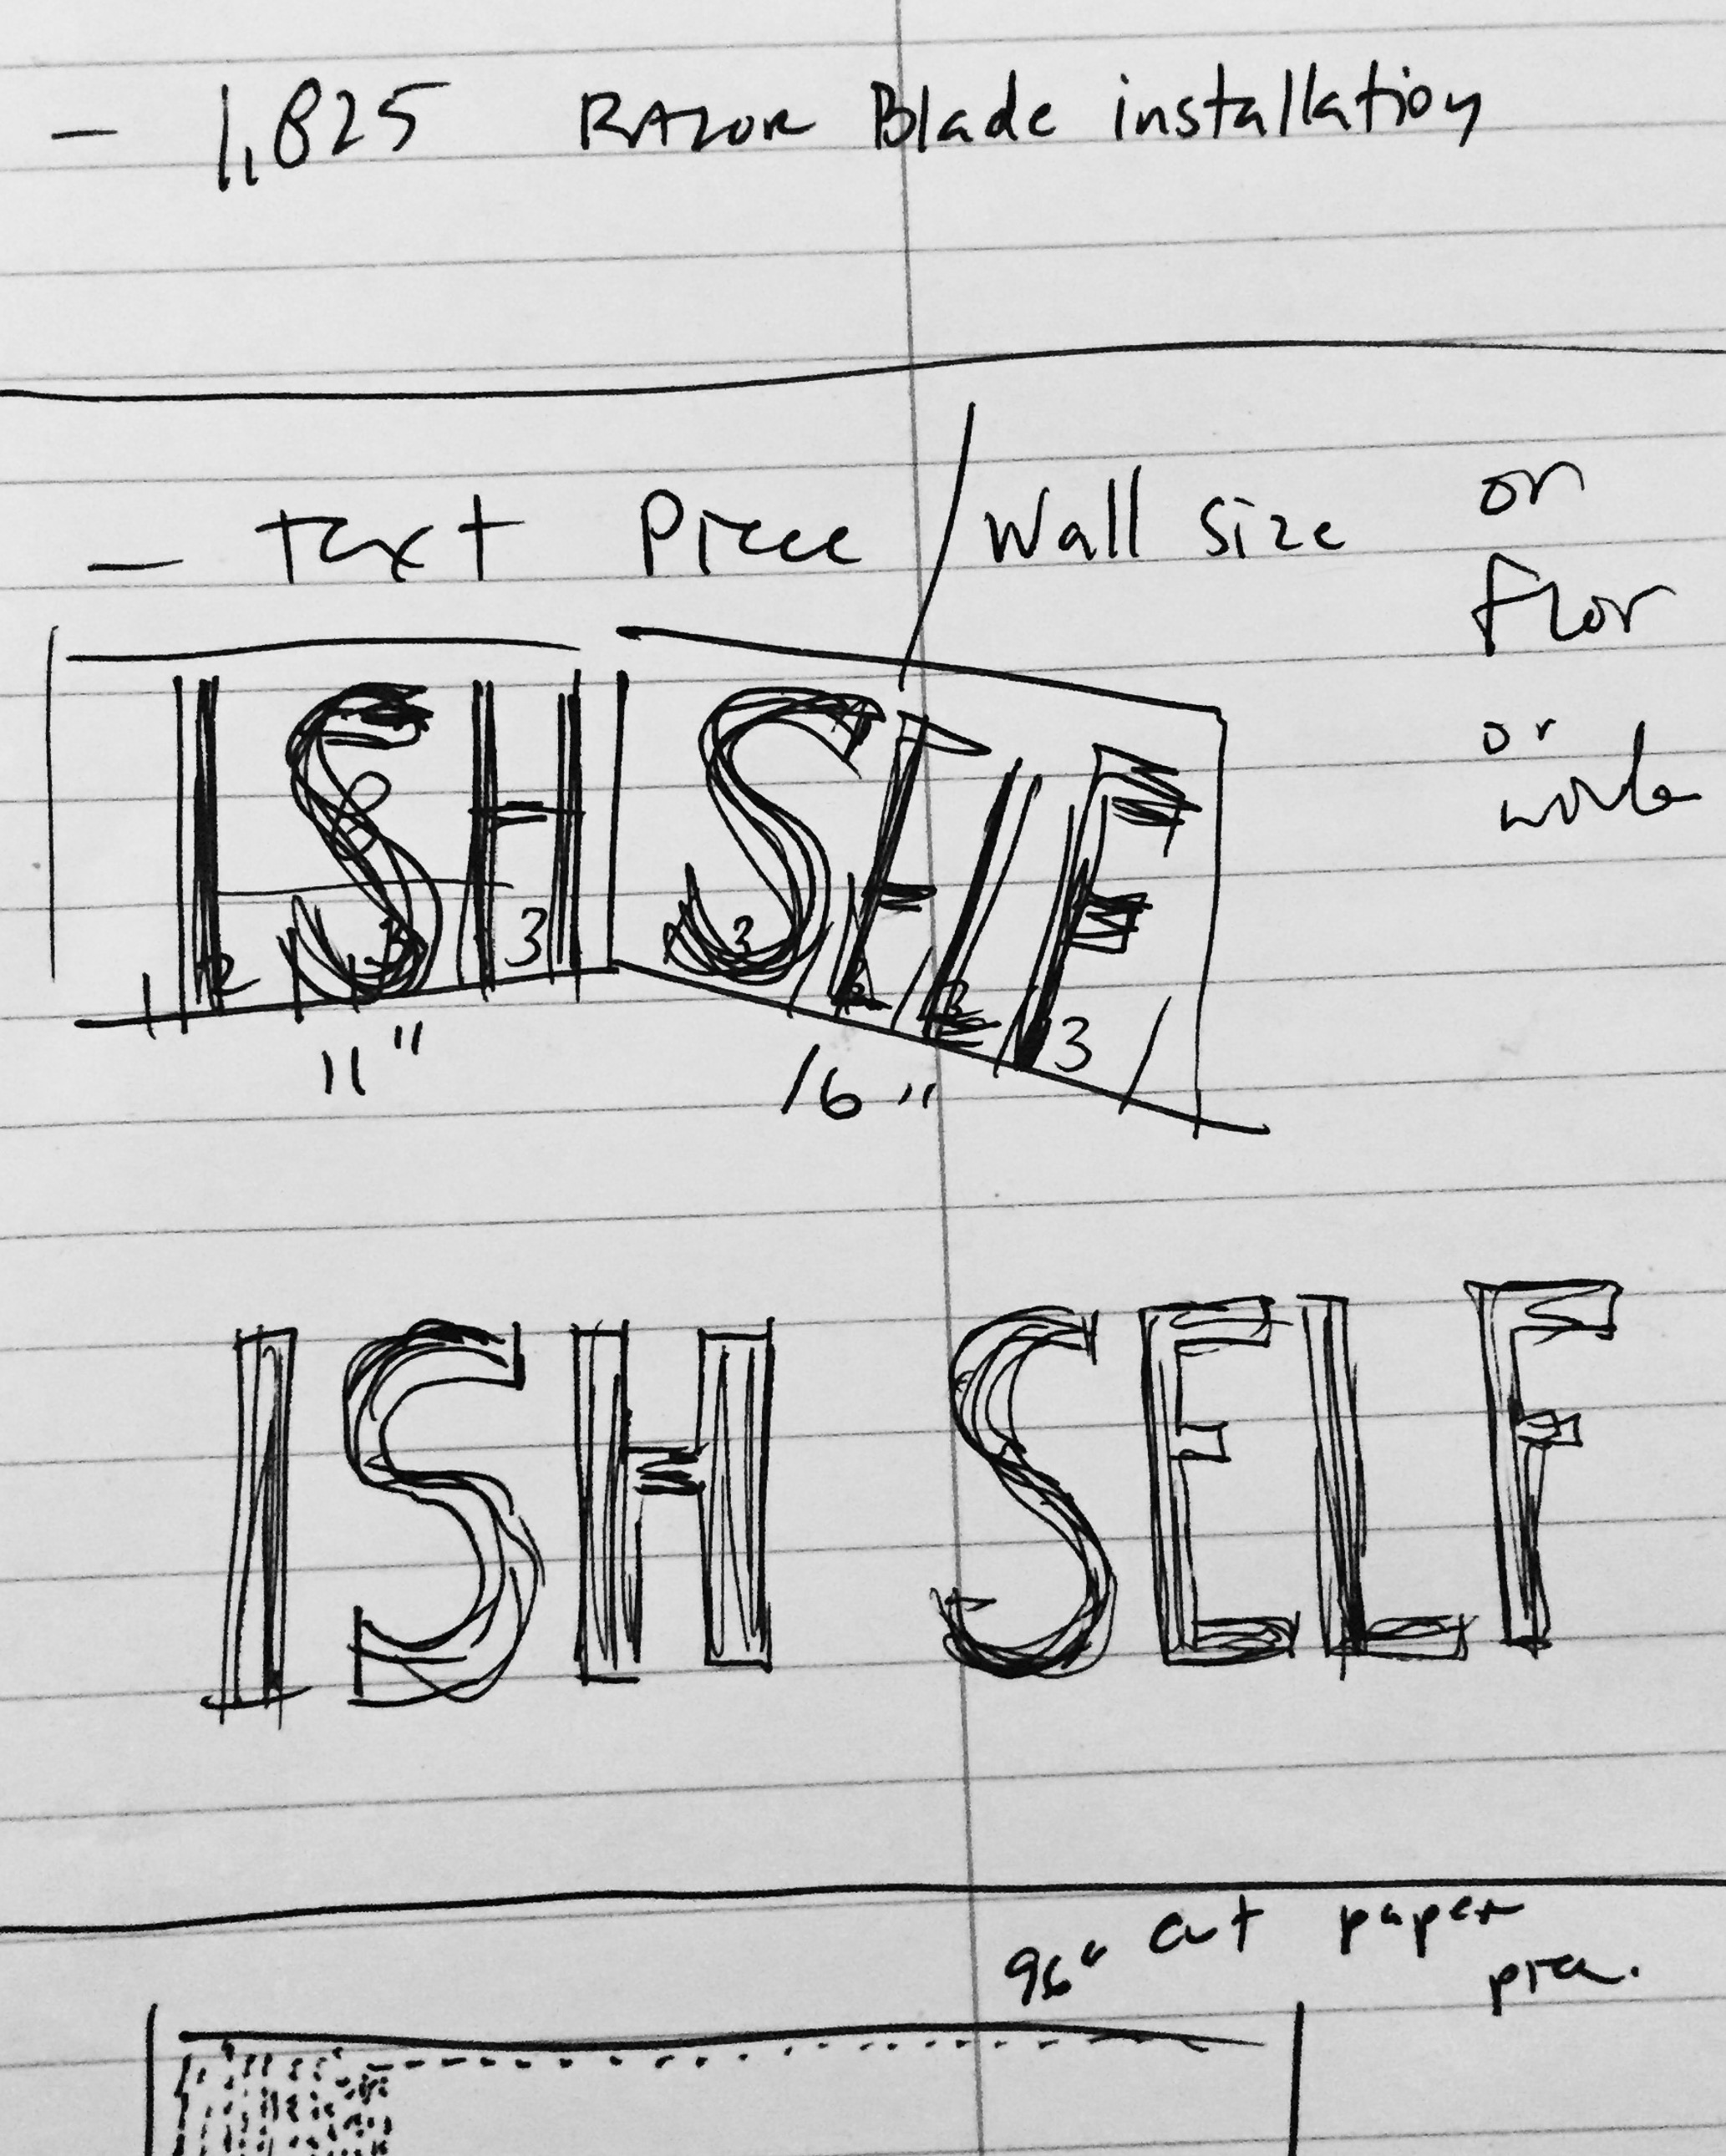 - 1,825 RAZOR Blade installation
- Text Piece / Wall size or
floor
or
ISH SELF
2 3 3 3 3
11" 16"
ISH SELF
96" cut paper
piece.